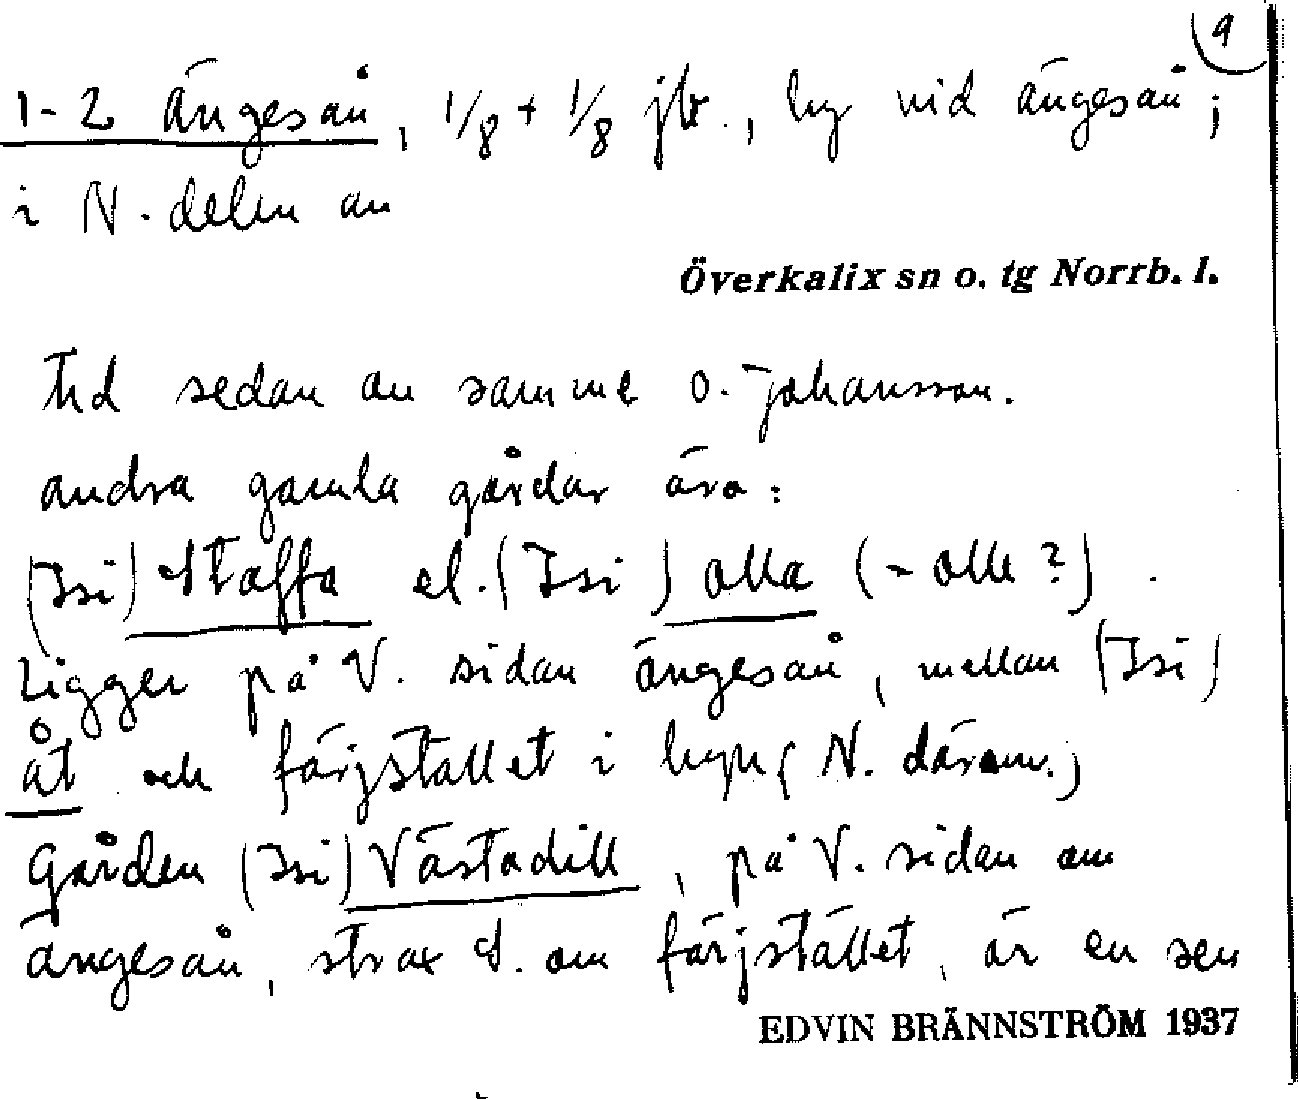 9
1-2 Ängesån, 1/8 + 1/8 jbr., by vid Ängesån;
i N. delen av
Överkalix sn o. tg Norrb. l.
tid sedan av samme O. Johansson.
Andra gamla gårdar äro:
(Isi) Staffa el. (Isi) Olla (-olle?).
Ligger på V. sidan Ängesån, mellan (Isi)
åt och färjstället i byn (N. därom.)
Gården (Isi) Västadill, på V. sidan om
Ängesån, strax S. om färjstället, är en sen
EDVIN BRÄNNSTRÖM 1937